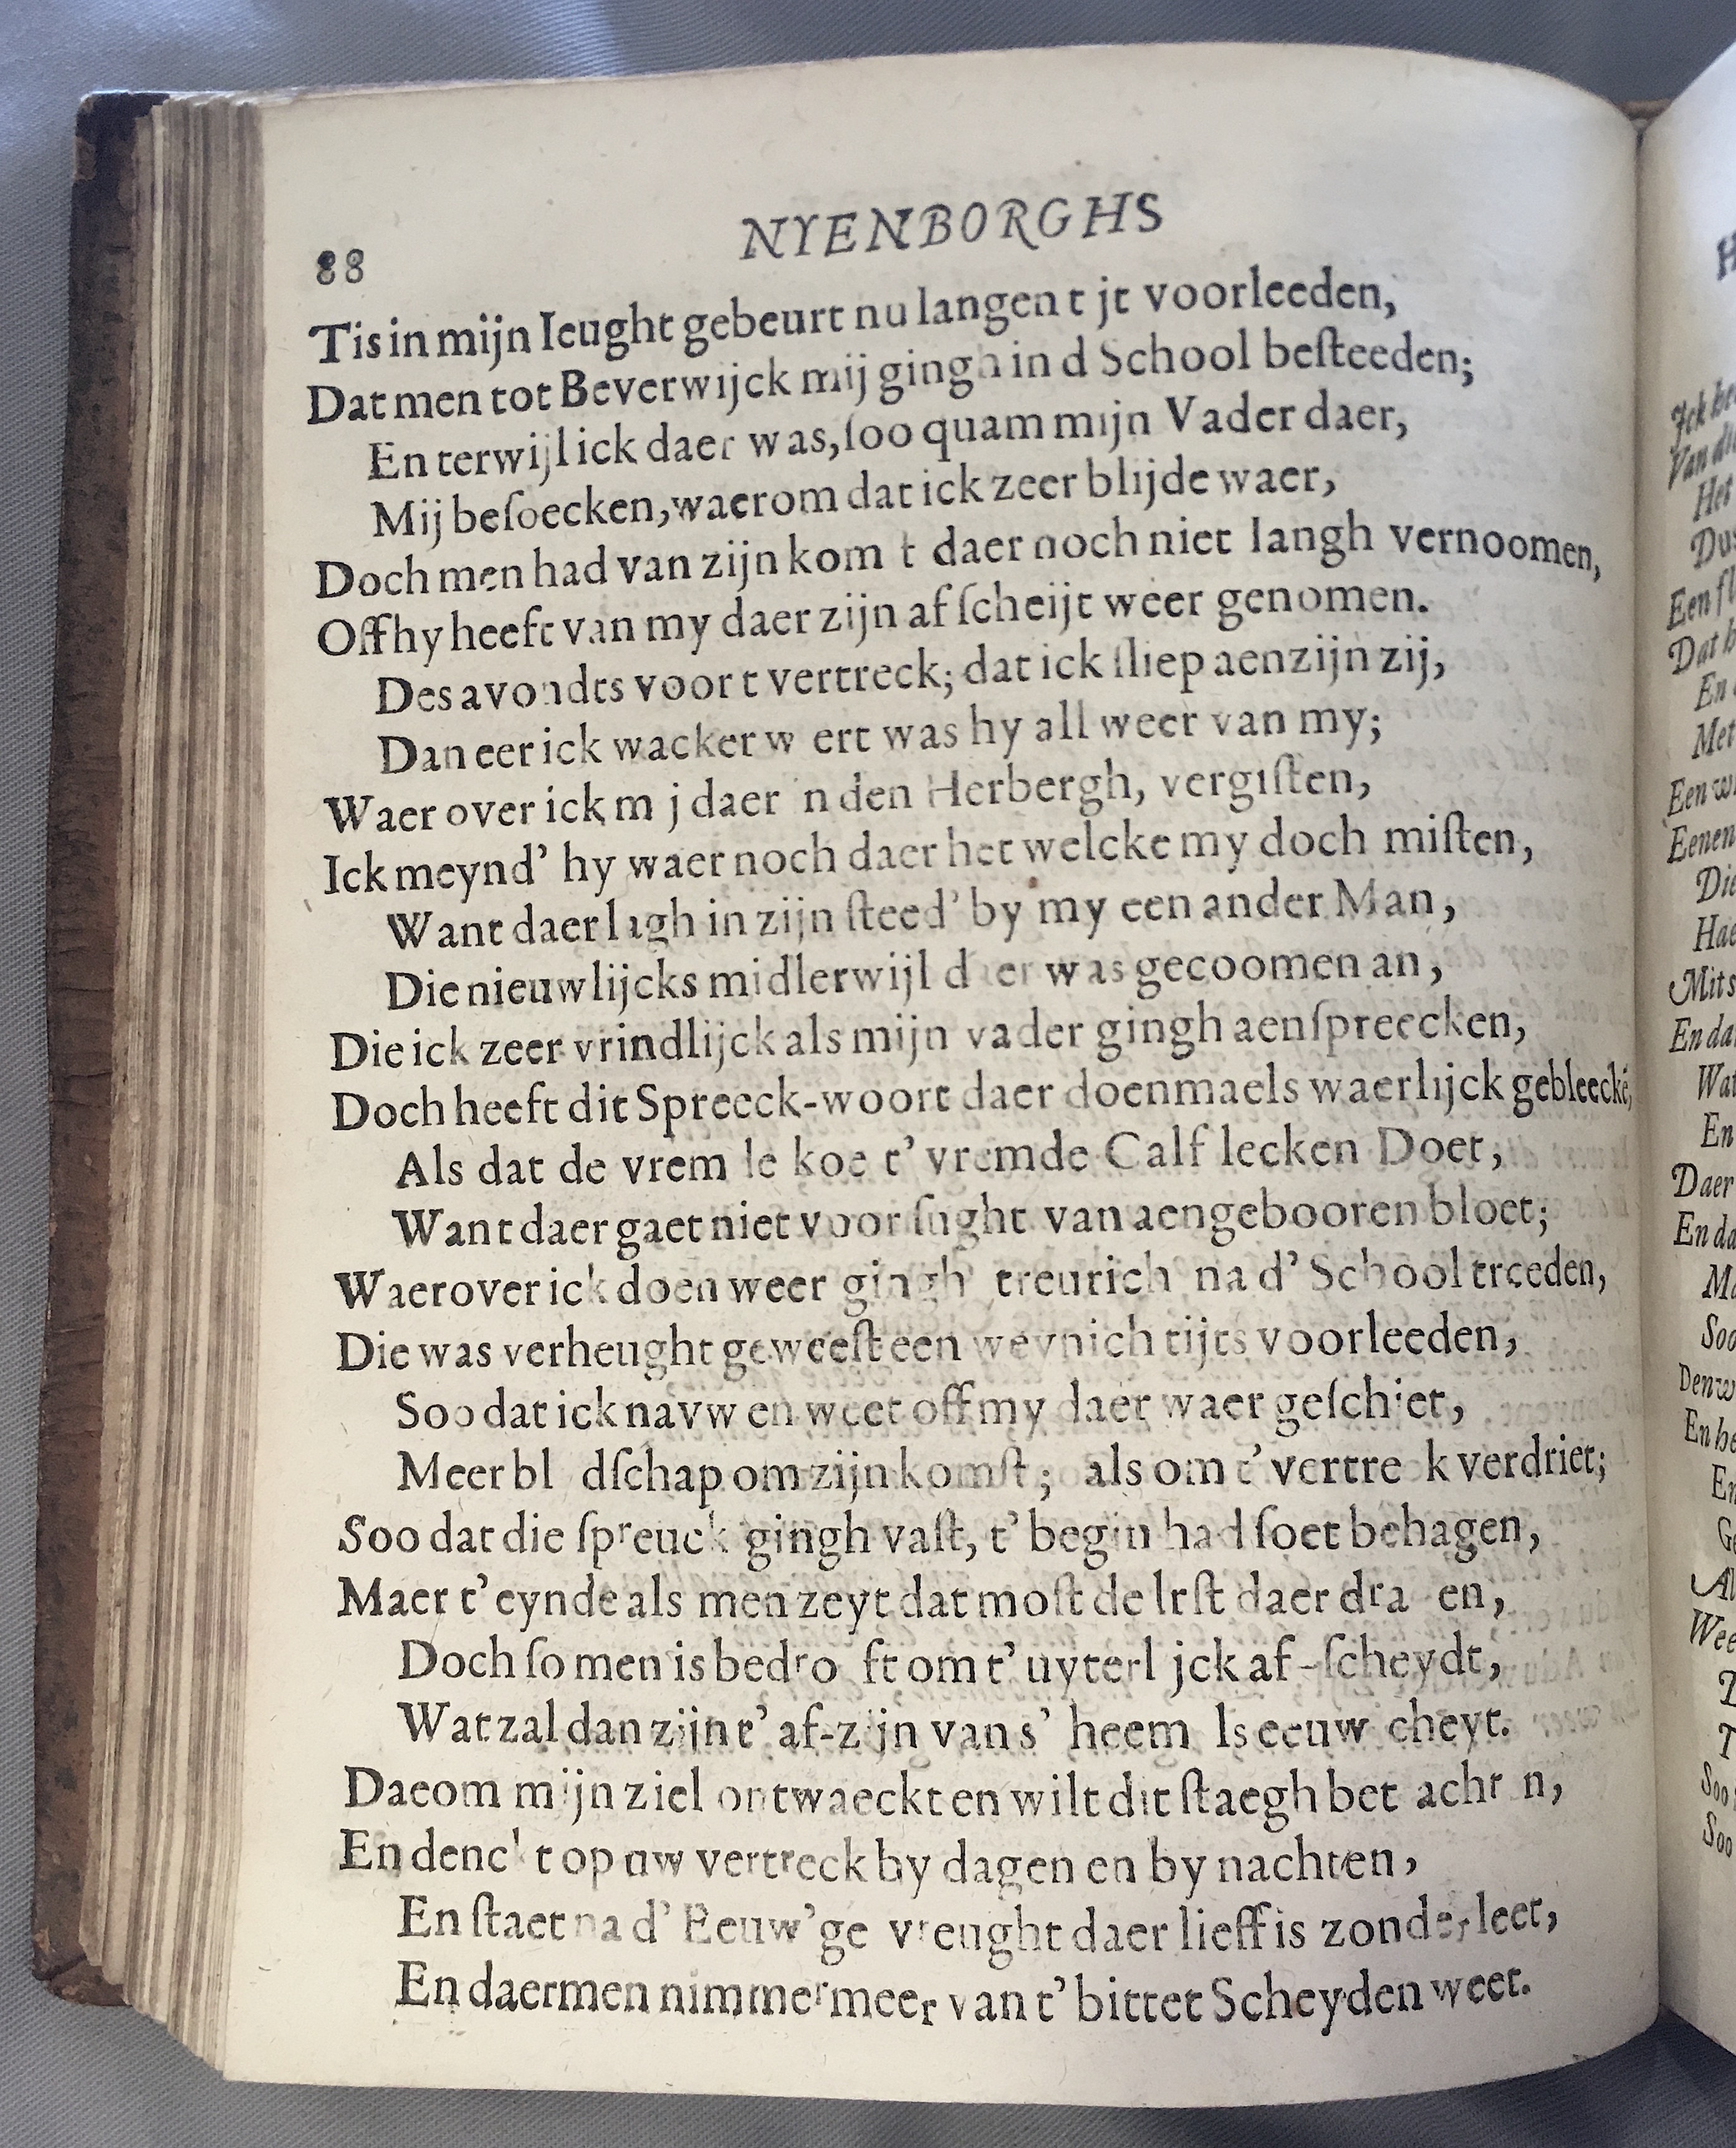 88 NYENBORGHS
Tis in mijn Ieught gebeurt nu langen t jt voorleeden,
Dat men tot Beverwijck mij gingh in d School beſteeden;
En terwijl ick daer was, ſoo quam mijn Vader daer,
Mij beſoecken, waerom dat ick zeer blijde waer,
Doch men had van zijn kom t daer noch niet langh vernoomen,
Off hy heeft van my daer zijn af ſcheijt weer genomen.
Des avondts voor t vertreck; dat ick ſliep aen zijn zij,
Dan eer ick wacker w ert was hy all weer van my;
Waer over ick m j daer in den Herbergh, vergiſten,
Ick meynd' hy waer noch daer het welcke my doch miſten,
Want daer lagh in zijn ſteed' by my een ander Man,
Die nieuwlijcks midlerwijl daer was gecoomen an,
Die ick zeer vrindlijck als mijn vader gingh aenſpreecken,
Doch heeft dit Spreeck-woort daer doenmaels waerlijck gebleecké,
Als dat de vremde koe t' vremde Calf lecken Doet,
Want daer gaet niet voor ſught van aengebooren bloet;
Waerover ick doen weer gingh treurich na d' School treeden,
Die was verheught geweeſt een weynich tijts voorleeden,
Soo dat ick navw en weet off my daer waer geſchiet,
Meer bl dſchap om zijn komſt; als om t' vertre k verdriet;
Soo dat die ſpreuck gingh vaſt, t' begin had ſoet behagen,
Maer t' eynde als men zeyt dat moſt de lrſt daer dra en,
Doch ſo men is bedro ft om t' uyterl jck af-ſcheydt,
Wat zal dan zijn t' af-zijn van s' heem ls eeuw cheyt.
Daeom mijn ziel ontwaeckt en wilt dit ſtaegh bet achr n,
En denckt op uw vertreck by dagen en by nachten,
En ſtaet na d' Eeuw'ge vreught daer lieff is zonder leet,
En daermen nimmermeer van t' bittet Scheyden weet.